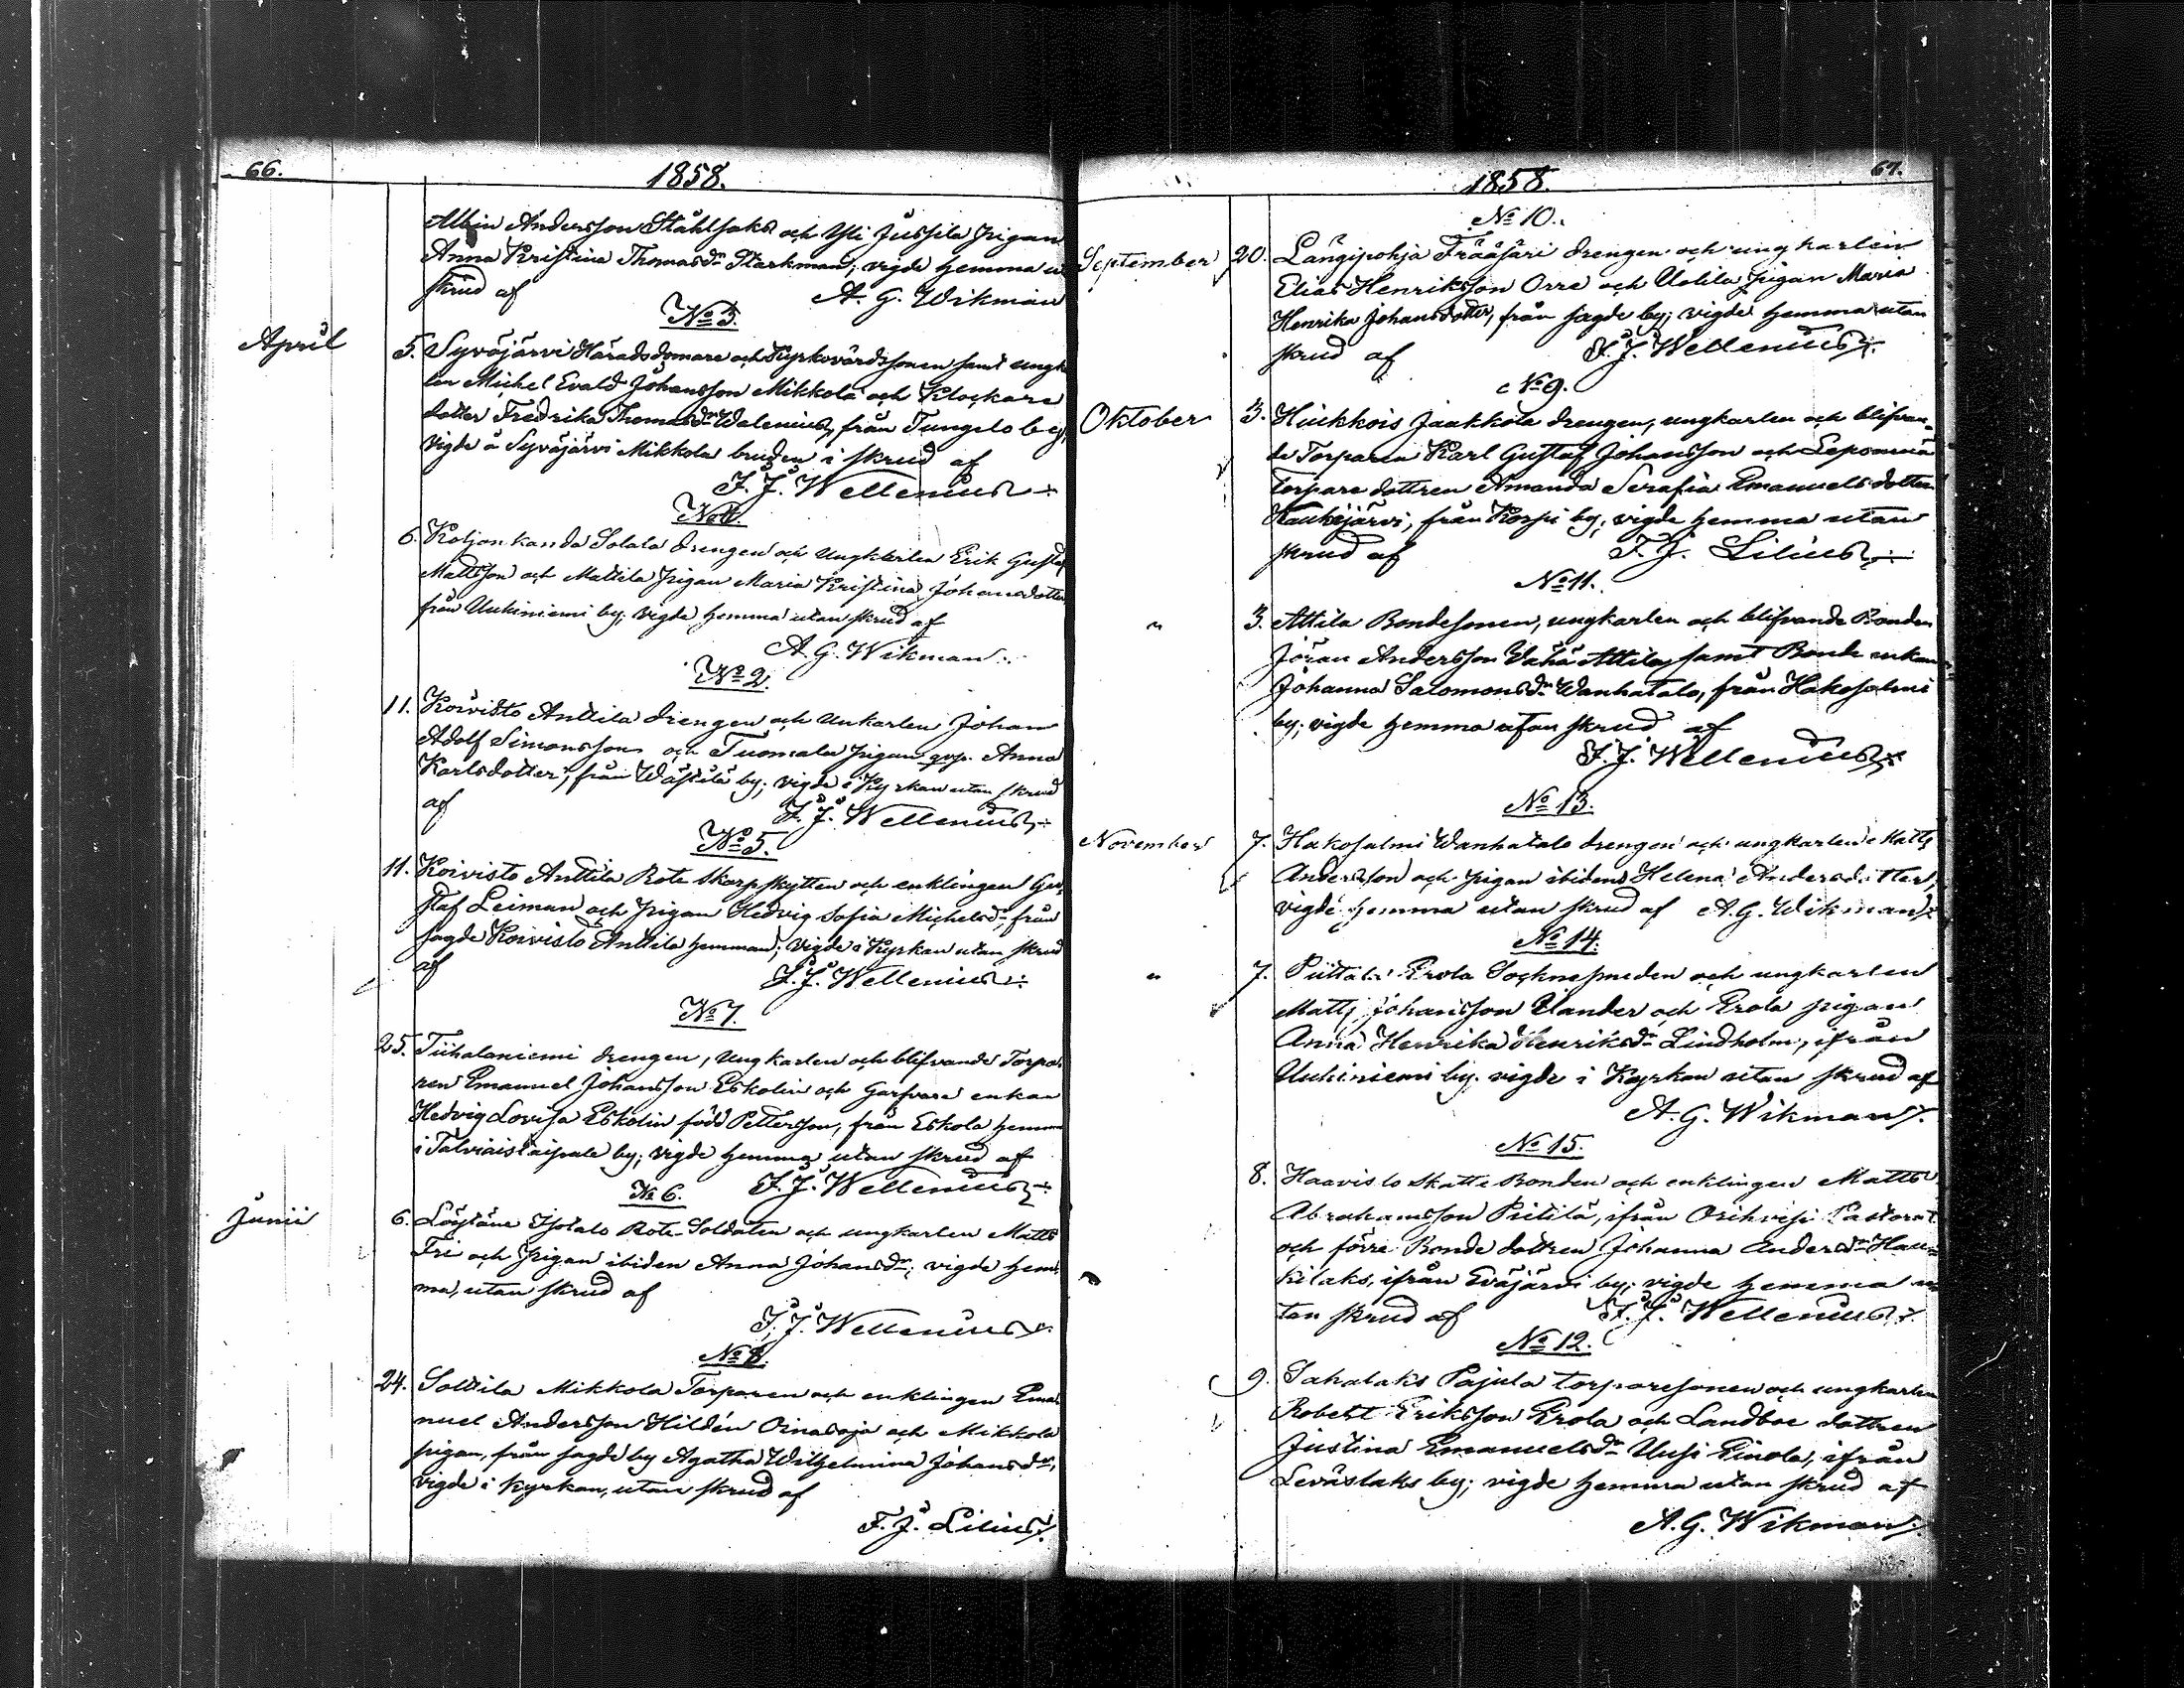 66.
1858.
Albin Andersson Ståhlsaks och Yli Jussila pigan
Anna Kristina Thomasdr Starkman; vigde hemma u
skrud af A. G. Wikman
No 3.
April 5. Syväjärvi Häradsdomare och Kyrkovärdssonen samt ungk
len Michel Evald Johansson Mikkola och Klockare
dotter Fredrika Thomasdr Walenius, från Tungelo by;
vigde å Syväjärvi Mikkola bruden i skrud af
F. J. Wellenius
No 4.
6. Koljonkanda Solala drengen och ungkarlen Erik Gustaf
Mattsson och Mattila pigan Maria Kristina Johansdotter
från Uuhiniemi by; vigde hemma utan skrud af
A. G. Wikman
No 2.
11. Koivisto Anttila drengen och unkarlen Johan
Adolf Simonsson och Tuomala pigan Anna
Karlsdotter, från Wästilä by; vigde i Kyrkan utan skrud
af F. J. Wellenius
No 5.
11. Koivisto Anttila Rote skarpskytten och enklingen Gu-
staf Leiman och pigan Hedvig Sofia Michelsdr, från
sagde Koivisto Anttila hemman; vigde i Kyrkan utan skrud
af F. J. Wellenius
No 7.
25. Tiihalaniemi drengen, ungkarlen och blifvande Torpa-
ren Emanuel Johansson Eskolin och Garfvare enkan
Hedvig Lovisa Eskolin född Pettersson, från Eskola hemm
i Talviaistaipale by; vigde hemma utan skrud af
F. J. Wellenius
No 6.
Junii 6. Löytäne Isotalo Rote-Soldaten och ungkarlen Matts
Fri och pigan ibiden Anna Johansdr; vigde hem-
ma, utan skrud af
F. J. Wellenius
No 8.
24. Solttila Mikkola Torparen och enklingen Ema-
nuel Andersson Hildén Oinasoja och Mikkola
pigan, från sagde by Agatha Wilhelmina Johansdr,
vigde i kyrkan, utan skrud af
F. J. Lilius
67.
1858.
No 10.
September 20. Längipohja Frääsäri drengen och ungkarlen
Elias Henriksson Orre och Uotila pigan Maria
Henrika Johansdotter, från sagde by; vigde hemma utan
skrud af F. J. Wellenius
No 9.
Oktober 3. Hiukkois Jaakkola drengen, ungkarlen och blifvan-
de Torparen Karl Gustaf Johansson och Leponiemi
Torpare dottren Amanda Serafia Emanuels dotter
Haukijärvi, från Korpi by, vigde hemma utan
skrud af F. J. Lilius
No 11.
" 3. Attila Bondesonen, ungkarlen och blifvande Bonden
Jöran Andersson Vähä Attila, samt Bonde enkan
Johanna Salomonsdr Wanhatalo, från Hakosalmi
by; vigde hemma utan skrud af
F. J. Wellenius
No 13.
November 7. Hakosalmi Wanhatalo drengen och ungkarlen Matts
Andersson och pigan ibidem Helena Andersdotter,
vigde hemma utan skrud af A. G. Wikman
No 14.
" 7. Erola Socknesmeden och ungkarlen
Matts Johansson Ulander och Erola pigan
Anna Henrika Henriksdr Lindholm, ifrån
Uuhiniemi by. vigde i Kyrkan utan skrud af
A. G. Wikman
No 15.
8. Haavisto Skatte Bonden och enklingen Matts
Abrahamsson Pietilä, ifrån Orihvisi Pastorat
och förre Bonde dottren Johanna Andersdr Hau-
kilaks, ifrån Eväjärvi by; vigde hemma u-
tan skrud af F. J. Wellenius
No 12.
9. Sahalaks Pajula torparesonen och ungkarlen
Robert Eriksson Erola och Landboe dottren
Justina Emanuelsdr Uusi Einola, ifrån
Leväslaks by; vigde hemma utan skrud af
A. G. Wikman